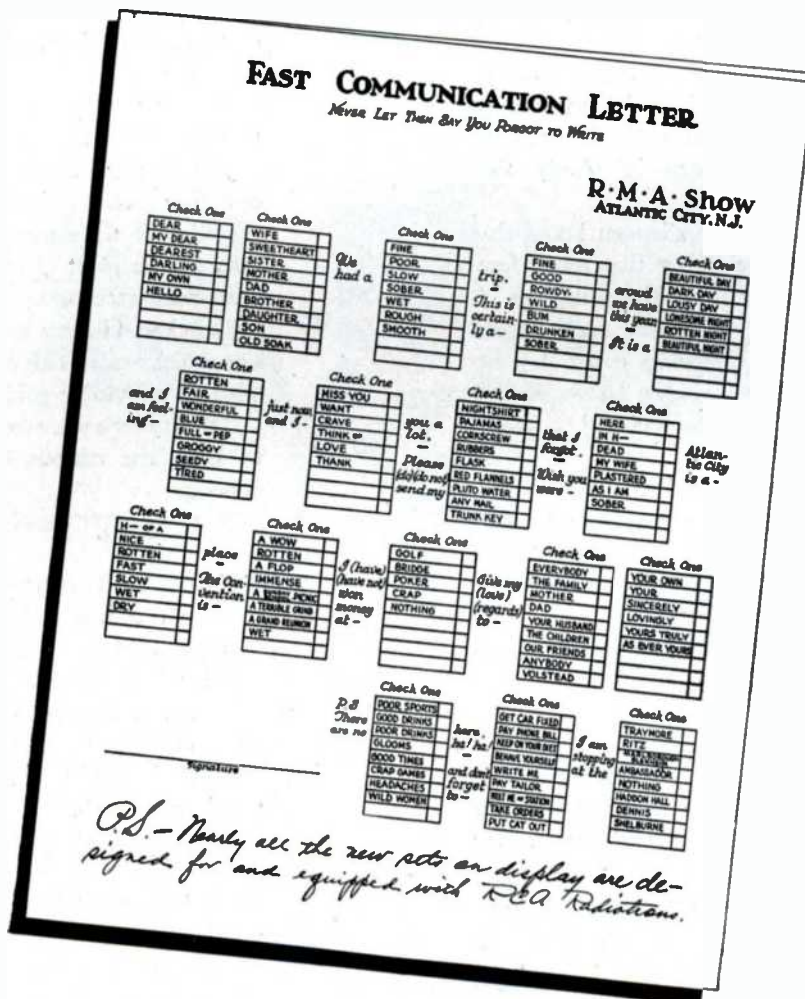 FAST COMMUNICATION LETTER
NEVER LET THEM SAY YOU FORGOT TO WRITE
R·M·A· Show
ATLANTIC CITY, N.J.
Check One
DEAR
MY DEAR
DEAREST
DARLING
MY OWN
HELLO
Check One
WIFE
SWEETHEART
SISTER
MOTHER
DAD
BROTHER
DAUGHTER
SON
OLD SOAK
We
had a
Check One
FINE
POOR
SLOW
SOBER
WET
ROUGH
SMOOTH
trip.
—
This is
certain-
ly a —
Check One
FINE
GOOD
ROWDY
WILD
BUM
DRUNKEN
SOBER
crowd
we have
this year
—
It is a
Check One
BEAUTIFUL DAY
DARK DAY
LOUSY DAY
LONESOME NIGHT
ROTTEN NIGHT
BEAUTIFUL NIGHT
and I
am feel-
ing —
Check One
ROTTEN
FAIR
WONDERFUL
BLUE
FULL OF PEP
GROGGY
SEEDY
TIRED
just now
and I —
Check One
MISS YOU
WANT
CRAVE
THINK OF
LOVE
THANK
you a
lot.
—
Please
(do)(do not)
send my
Check One
NIGHTSHIRT
PAJAMAS
CORKSCREW
RUBBERS
FLASK
RED FLANNELS
PLUTO WATER
ANY MAIL
TRUNK KEY
that I
forgot.
—
Wish you
were —
Check One
HERE
IN H—
DEAD
MY WIFE
PLASTERED
AS I AM
SOBER
Atlan-
tic City
is a —
Check One
H— OF A
NICE
ROTTEN
FAST
SLOW
WET
DRY
place
—
The Con-
vention
is —
Check One
A WOW
ROTTEN
A FLOP
IMMENSE
A PICNIC
A TERRIBLE GRIND
A GRAND REUNION
WET
I (have)
(have not)
won
money
at —
Check One
GOLF
BRIDGE
POKER
CRAP
NOTHING
Give my
(love)
(regards)
to —
Check One
EVERYBODY
THE FAMILY
MOTHER
DAD
YOUR HUSBAND
THE CHILDREN
OUR FRIENDS
ANYBODY
VOLSTEAD
Check One
YOUR OWN
YOUR
SINCERELY
LOVINGLY
YOURS TRULY
AS EVER YOURS
P.S
There
are no
Check One
POOR SPORTS
GOOD DRINKS
POOR DRINKS
GLOOMS
GOOD TIMES
CRAP GAMES
HEADACHES
WILD WOMEN
here,
ha! ha!
—
and don't
forget
to —
Check One
GET CAR FIXED
PAY PHONE BILL
KEEP ON YOUR DIET
BEHAVE YOURSELF
WRITE ME
PAY TAILOR
MEET ME AT STATION
TAKE ORDERS
PUT CAT OUT
I am
stopping
at the
Check One
TRAYMORE
RITZ
AMBASSADOR
NOTHING
HADDON HALL
DENNIS
SHELBURNE
Signature
P.S. — Nearly all the new sets on display are de-
signed for and equipped with RCA Radiotrons.